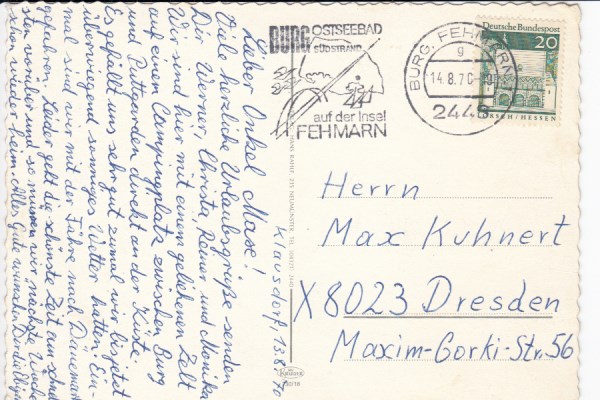 BURG OSTSEEBAD
SÜDSTRAND
auf der Insel
FEHMARN
BURG, FEHMARN
g
14.8.70
2448
Deutsche Bundespost
20
LORSCH/HESSEN
Klausdorf, 13.8.70
Lieber Onkel Maxe!
Viele herzliche Urlaubsgrüße senden
Dir Werner, Christa, Reiner und Monika
Wir sind hier mit einem geliehenen Zelt
auf einem Campingplatz zwischen Burg
und Puttgarden direkt an der Küste.
Es gefällt uns sehr gut zumal wir bis jetzt
überwiegend sonniges Wetter hatten. Ein-
mal sind wir mit der Fähre nach Dänemark
gefahren. Leider geht die schönste Zeit am schnell-
sten vorüber und so müssen wir nächste Woche
schon wieder heim. Alles Gute wünschen Dir die
Herrn
Max Kuhnert
X 8023 Dresden
Maxim-Gorki-Str. 56
KRÜGER